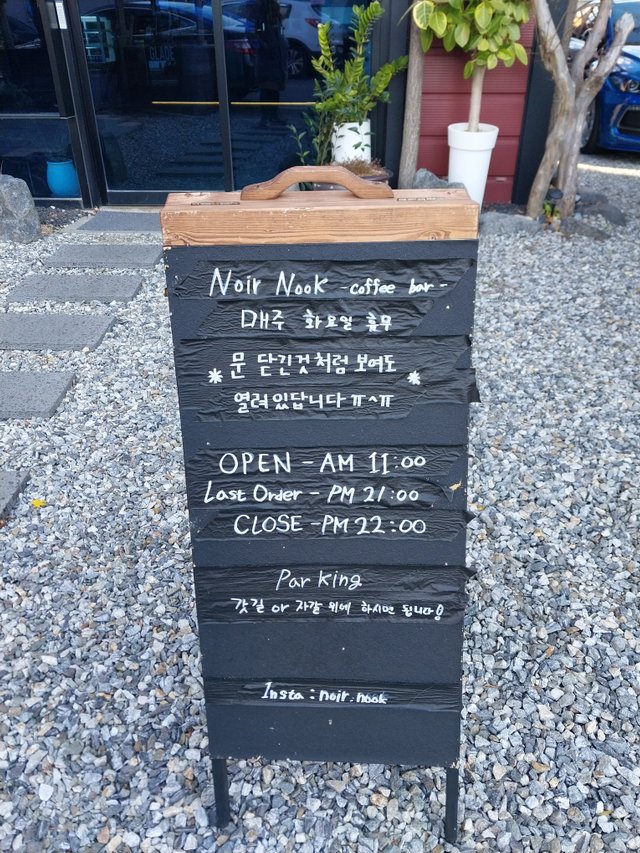 GLADE
Noir Nook -coffee bar-
매주 화요일 휴무
* 문 닫긴것처럼 보여도 *
열려있답니다 ㅠ^ㅠ
OPEN - AM 11:00
Last Order - PM 21:00
CLOSE - PM 22:00
Parking
갓길 or 자갈 위에 하시면 됩니다!
Insta : noir.nook